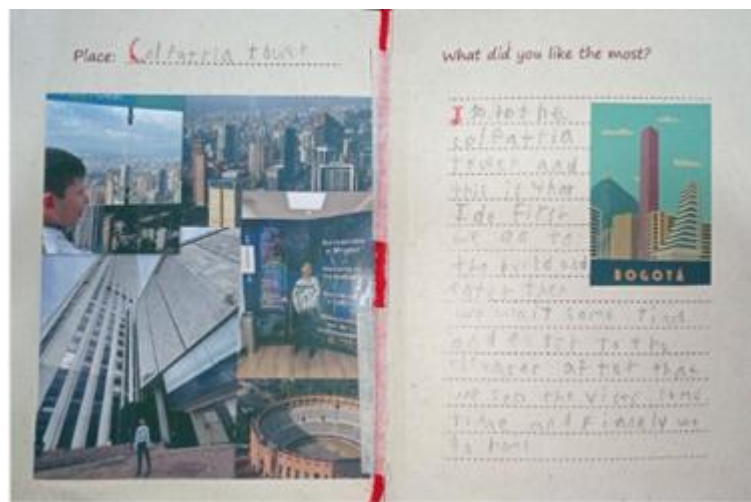 Place: Colpatria tower
What did you like the most?
I to the
colpatria
tower and
this is what
I do First
we go to
the build and
enter then
we wait some time
and enter to the
after that
we see the views some
time and finely we
to home
BOGOTÁ